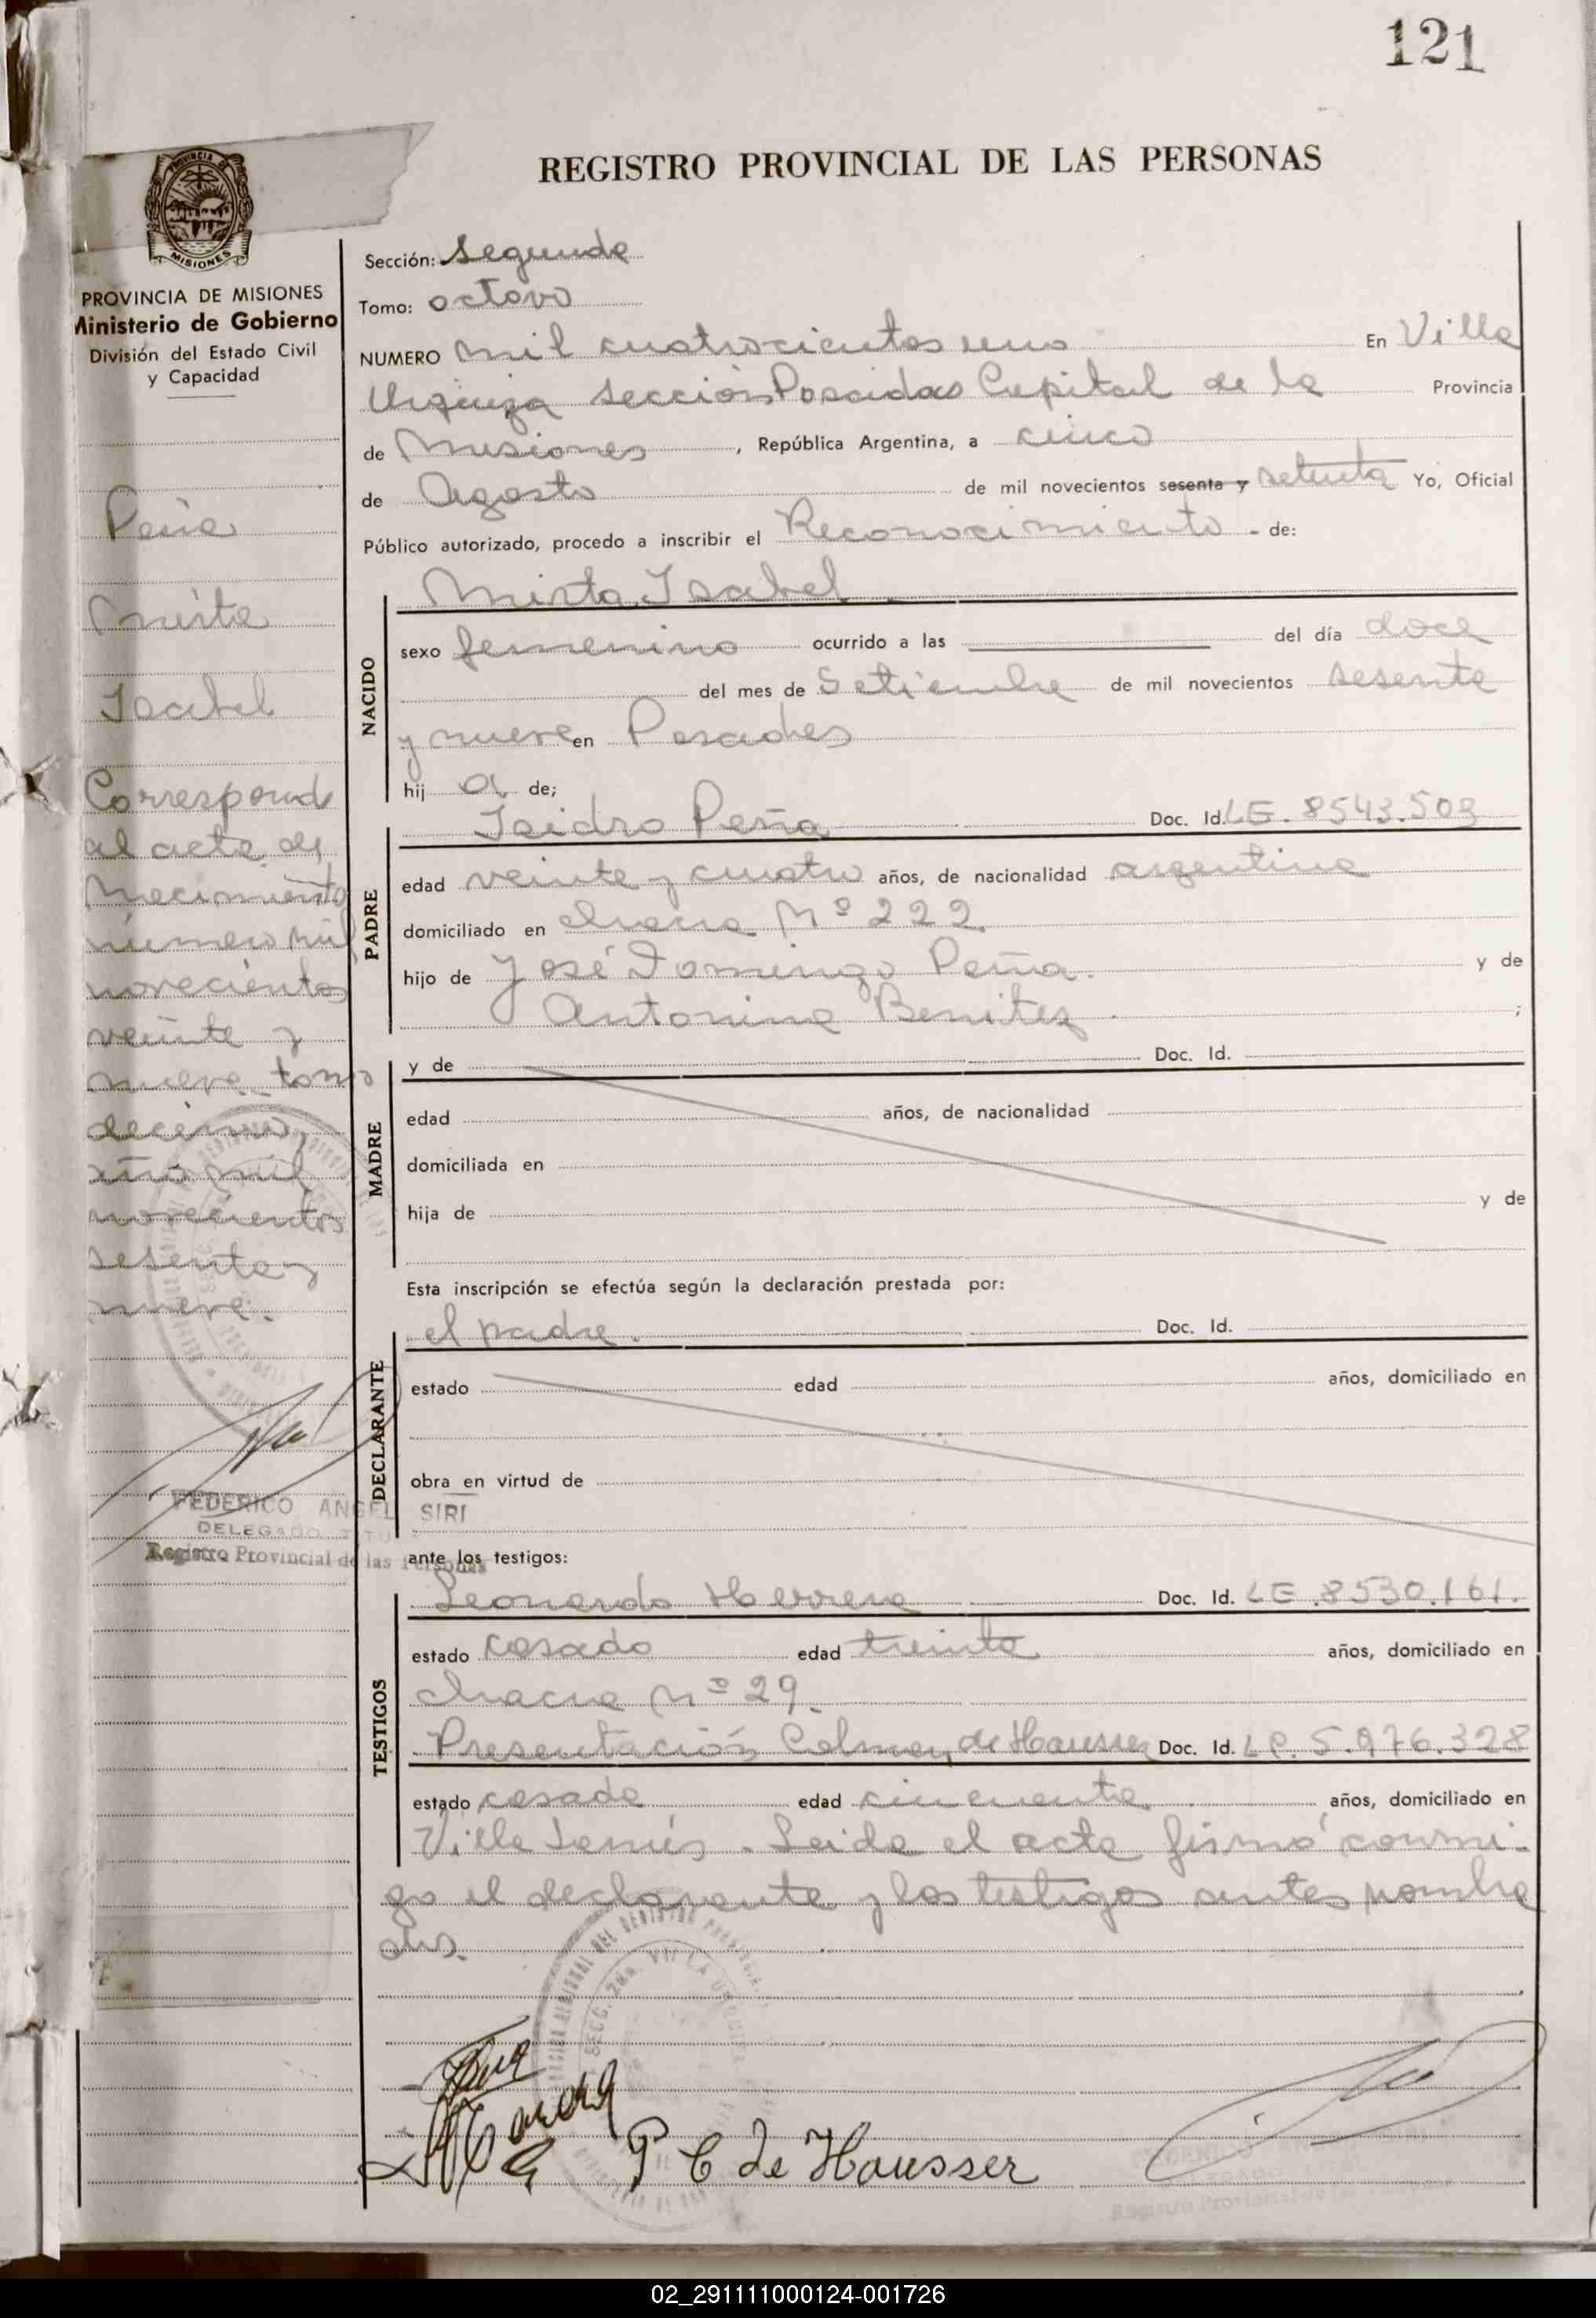 121
REGISTRO PROVINCIAL DE LAS PERSONAS
PROVINCIA DE MISIONES
Ministerio de Gobierno
División del Estado Civil
y Capacidad
Peña
Mirta
Isabel
Correspond
al acta de
Nacimiento
número mil
novecientos
veinte y
nueve tomo
decimo,
año mil
novecientos
sesenta y
nueve.
FEDERICO ANGEL SIRI
DELEGADO
Registro Provincial de las Personas
Sección: Segunda
Tomo: octavo
NUMERO mil cuatrocientos uno En Villa
Urquiza Sección Posadas Capital de la Provincia
de Misiones, República Argentina, a cinco
de Agosto de mil novecientos sesenta y setenta Yo, Oficial
Público autorizado, procedo a inscribir el Reconocimiento - de:
Mirta Isabel.
NACIDO
sexo femenino ocurrido a las del día doce
del mes de Setiembre de mil novecientos sesenta
y nueve en Posadas
hij a de;
PADRE
Isidro Peña Doc. Id. LE. 8543.509
edad veinte y cuatro años, de nacionalidad argentina
domiciliado en chacra Nº 222.
hijo de José Domingo Peña. y de
Antonina Benitez. ;
MADRE
y de Doc. Id.
edad años, de nacionalidad
domiciliada en
hija de y de
Esta inscripción se efectúa según la declaración prestada por:
DECLARANTE
el padre. Doc. Id.
estado edad años, domiciliado en
obra en virtud de
ante los testigos:
TESTIGOS
Leonardo Herrera Doc. Id. LE.8530.161.
estado casado edad treinta años, domiciliado en
chacra nº 29.
Presentación de Hausser Doc. Id. LC. 5.976.328
estado casada edad cincuenta años, domiciliado en
Villa Lanús. Leida el acta firmó conmi-
go el declarante y los testigos antes nombra
dos.
P C de Hausser
02_291111000124-001726